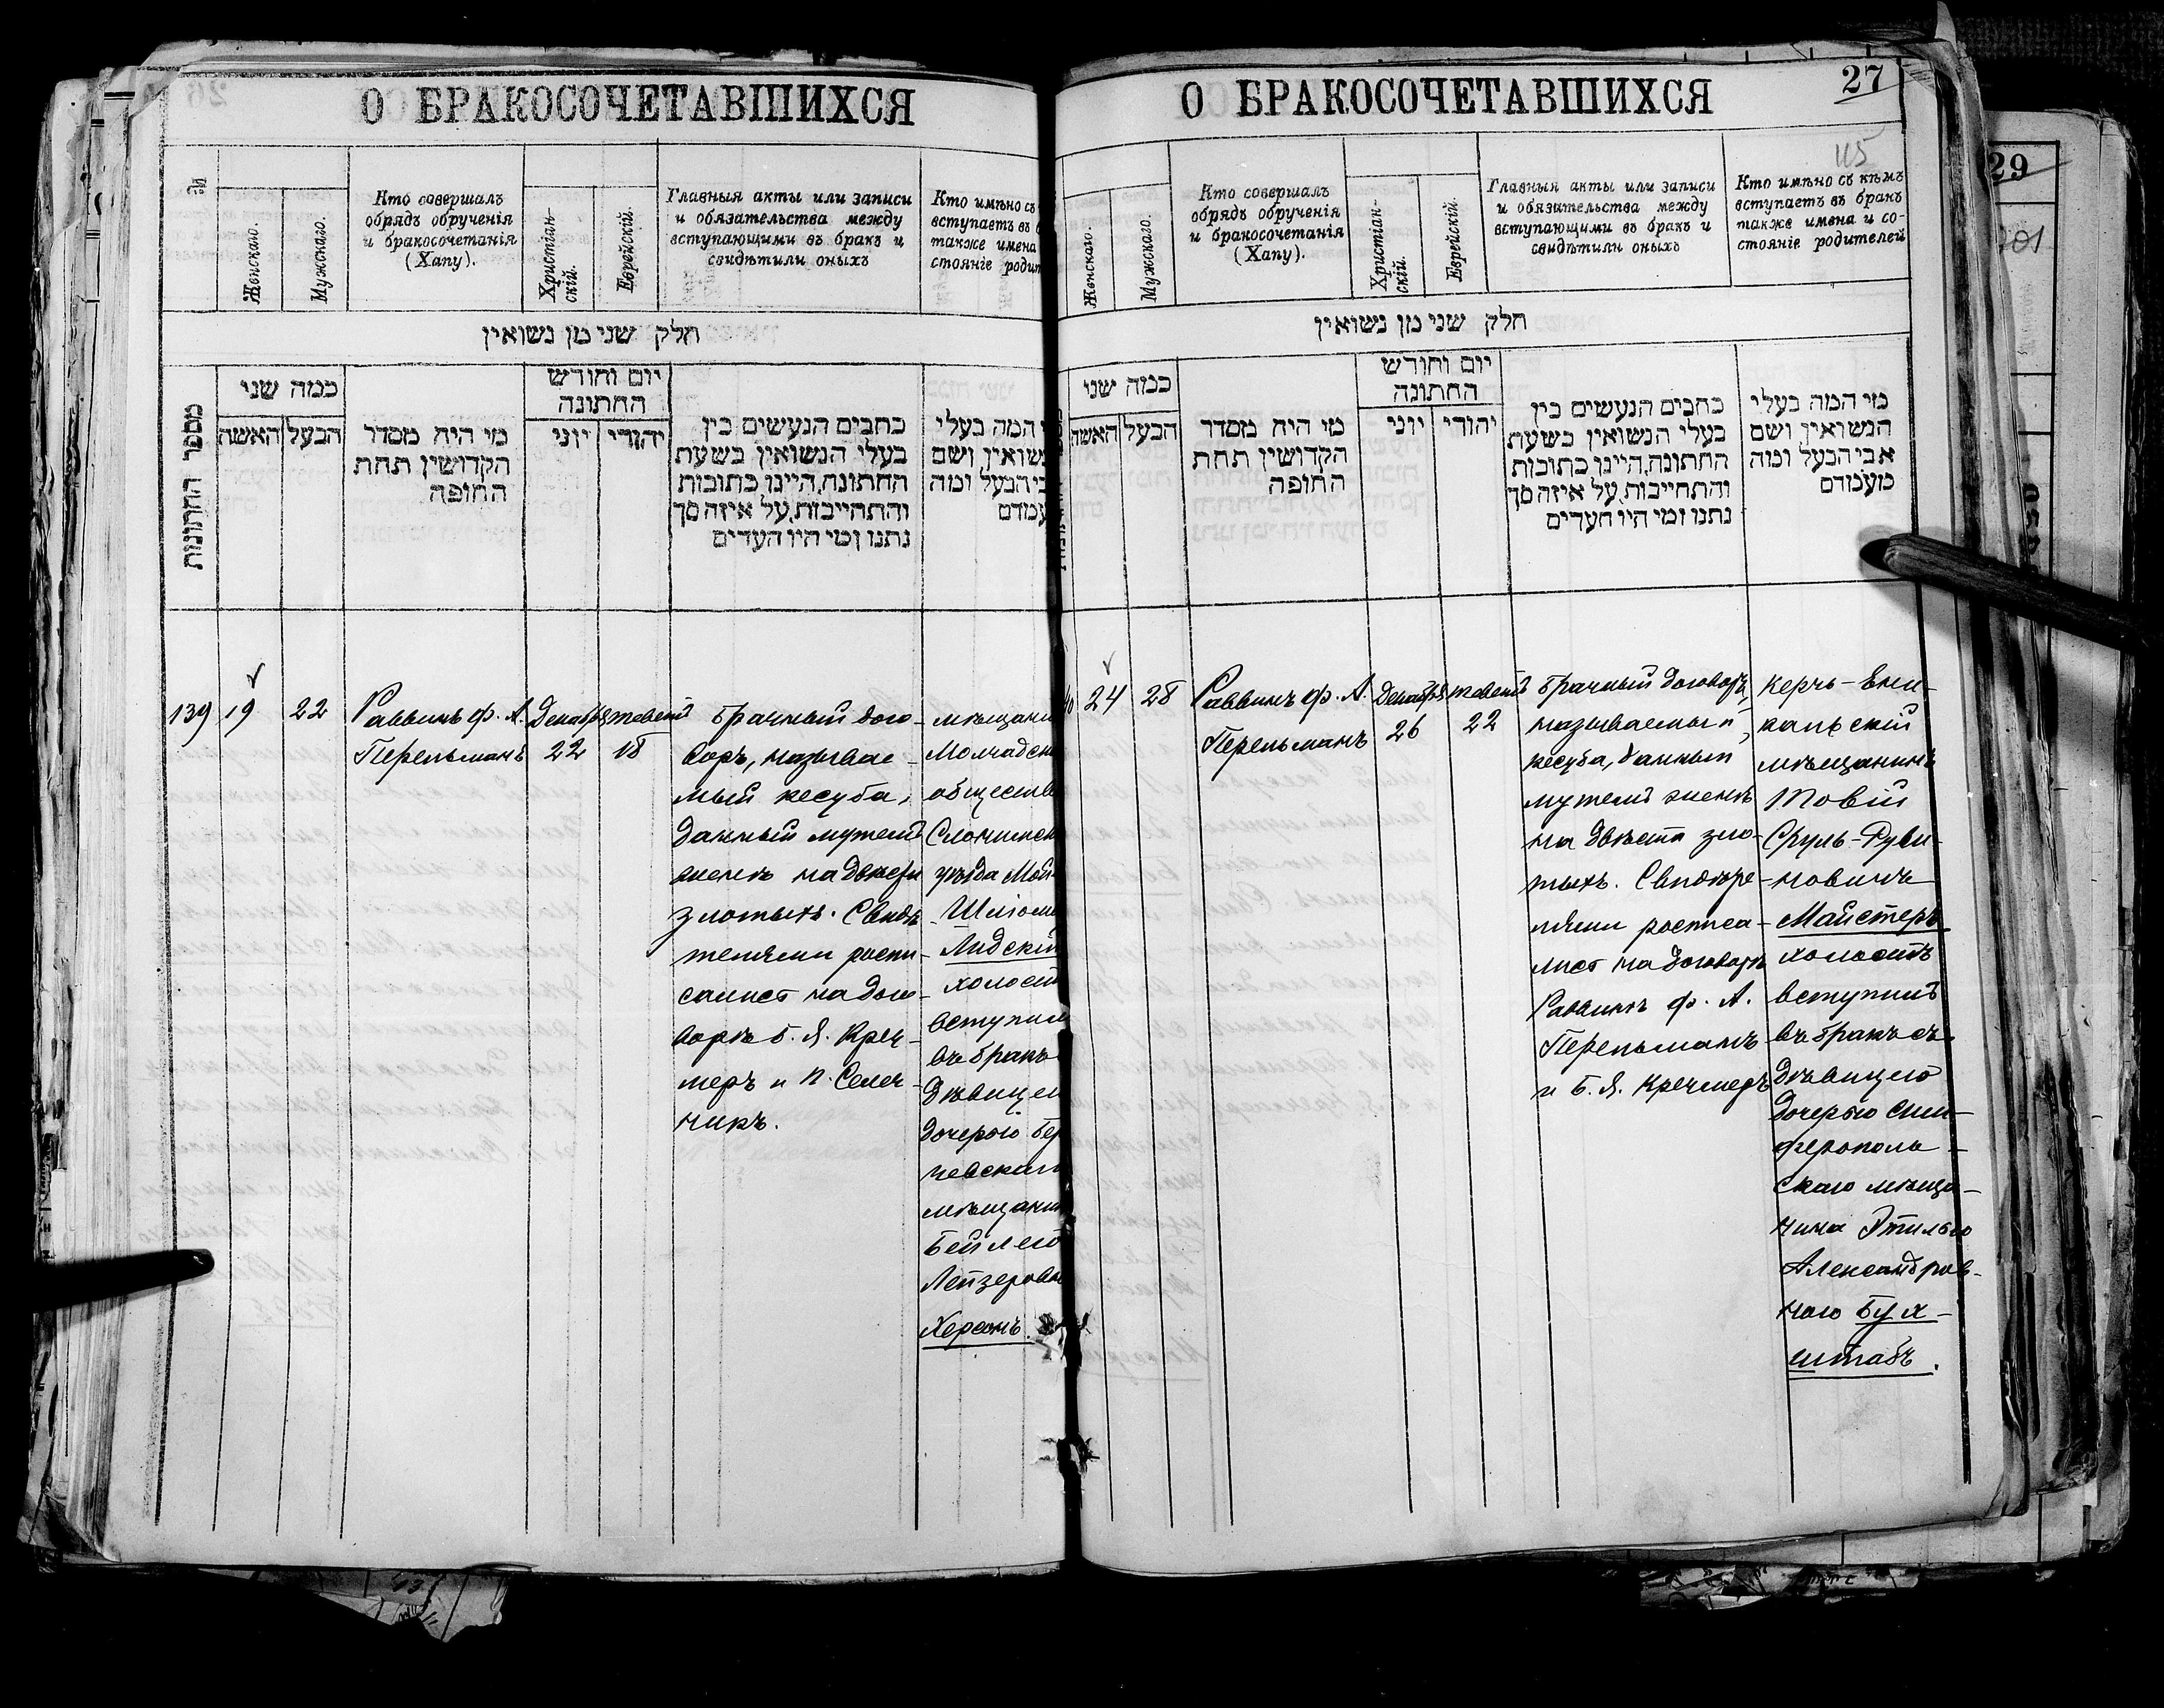 О БРАКОСОЧЕТАВШИХСЯ
№
Женскаго.
Мужскаго.
Кто совершалъ
обрядъ обрученія
и бракосочетанія
(Хапу).
Христіан-
скій.
Еврейскій.
Главныя акты или записи
и обязательства между
вступающими въ бракъ и
свидѣтили оныхъ
Кто имѣно съ
вступаетъ въ
также имена
стояніе
חלק שני מן נשואין
מספר החתונות
כמה שני
האשה
הבעל
מי היה מסדר
הקדושין תחת
החופה
יום וחודש
החתונה
יוני
יהודי
כתבים הנעשים בין
בעלי הנשואין בשעת
החתונה, היינו כתובות
והתחייבות, על איזה סך
נתנו ומי היו העדים
המה בעלי
ושם
הבעל ומה
139
19
22
Раввинъ ф. А.
Перельманъ
Декабря
22
тевета
18
Брачный дого-
воръ, называе-
мый кесуба,
данный мужемъ
женѣ на двѣсти
злотыхъ. Свидѣ-
телями распи-
сались на дого-
ворѣ Б. Я. Креч-
меръ и П. Селеч-
никъ.
Молчадск
обществ
Слонимск
уѣзда
Шліома
Лидскій
холостъ
вступил
въ бракъ
дѣвицею
дочерью
чевскаго
мѣщанин
Бейлею
Лейзеровн
Херсонъ.
О БРАКОСОЧЕТАВШИХСЯ
27
115
Женскаго.
Мужскаго.
Кто совершалъ
обрядъ обрученія
и бракосочетанія
(Хапу).
Христіан-
скій.
Еврейскій.
Главныя акты или записи
и обязательства между
вступающими въ бракъ и
свидѣтили оныхъ
Кто имѣно съ кѣмъ
вступаетъ въ бракъ
также имена и со-
стояніе родителей
חלק שני מן נשואין
כמה שני
האשה
הבעל
מי היה מסדר
הקדושין תחת
החופה
יום וחודש
החתונה
יוני
יהודי
כתבים הנעשים בין
בעלי הנשואין בשעת
החתונה, היינו כתובות
והתחייבות, על איזה סך
נתנו ומי היו העדים
מי המה בעלי
הנשואין ושם
אבי הבעל ומה
מעמדם
24
28
Раввинъ ф. А.
Перельманъ
Декабря
26
тевета
22
Брачный договоръ,
называемый
кесуба, данный
мужемъ женѣ
на двѣсти зло-
тыхъ. Свидѣте-
лями расписа-
лись на договорѣ
Раввинъ ф. А.
Перельманъ
и Б. Я. Кречмеръ
Керчь-Ени-
кальскій
мѣщанинъ
Товій
Сруль-Руви-
новичъ
Майстеръ
холостъ
вступилъ
въ бракъ съ
дѣвицею
дочерью сим-
ферополь-
скаго мѣща-
нина Этилью
Александров-
ною Бух-
штабъ.
29
101